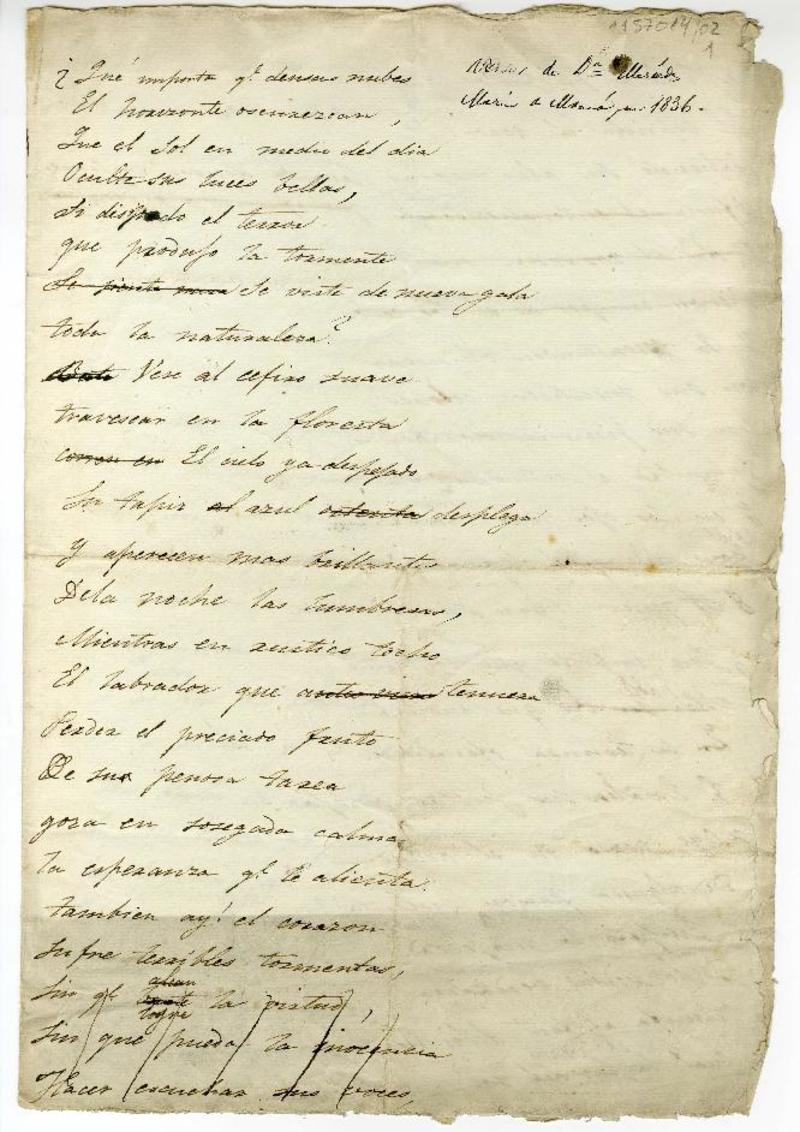 1157014/02
1
Versos de Dª Mercedes
Marin  1836.
¿Qué importa qe densas nubes
El horizonte oscurezcan,
Que el Sol en medio del dia
Oculte sus luces bellas,
Si disipado el terror
que produjo la tormenta
Se siente Se viste de nueva gala
toda la naturaleza?
Vese al cefiro suave
travesear en la floresta
corren en El cielo ya despejado
Su tapiz al azul ostenta desplega
Y aparecen mas brillantes
De la noche las lumbreras,
Mientras en rustico techo
El labrador que temiera
Perder el preciado fruto
De su penosa tarea
goza en sosegada calma
la esperanza qe le alienta.
tambien ay! el corazon
sufre terribles tormentas,
Sin qe logre la virtud,
Sin que pueda la inocencia
Hacer escuchar sus voces,